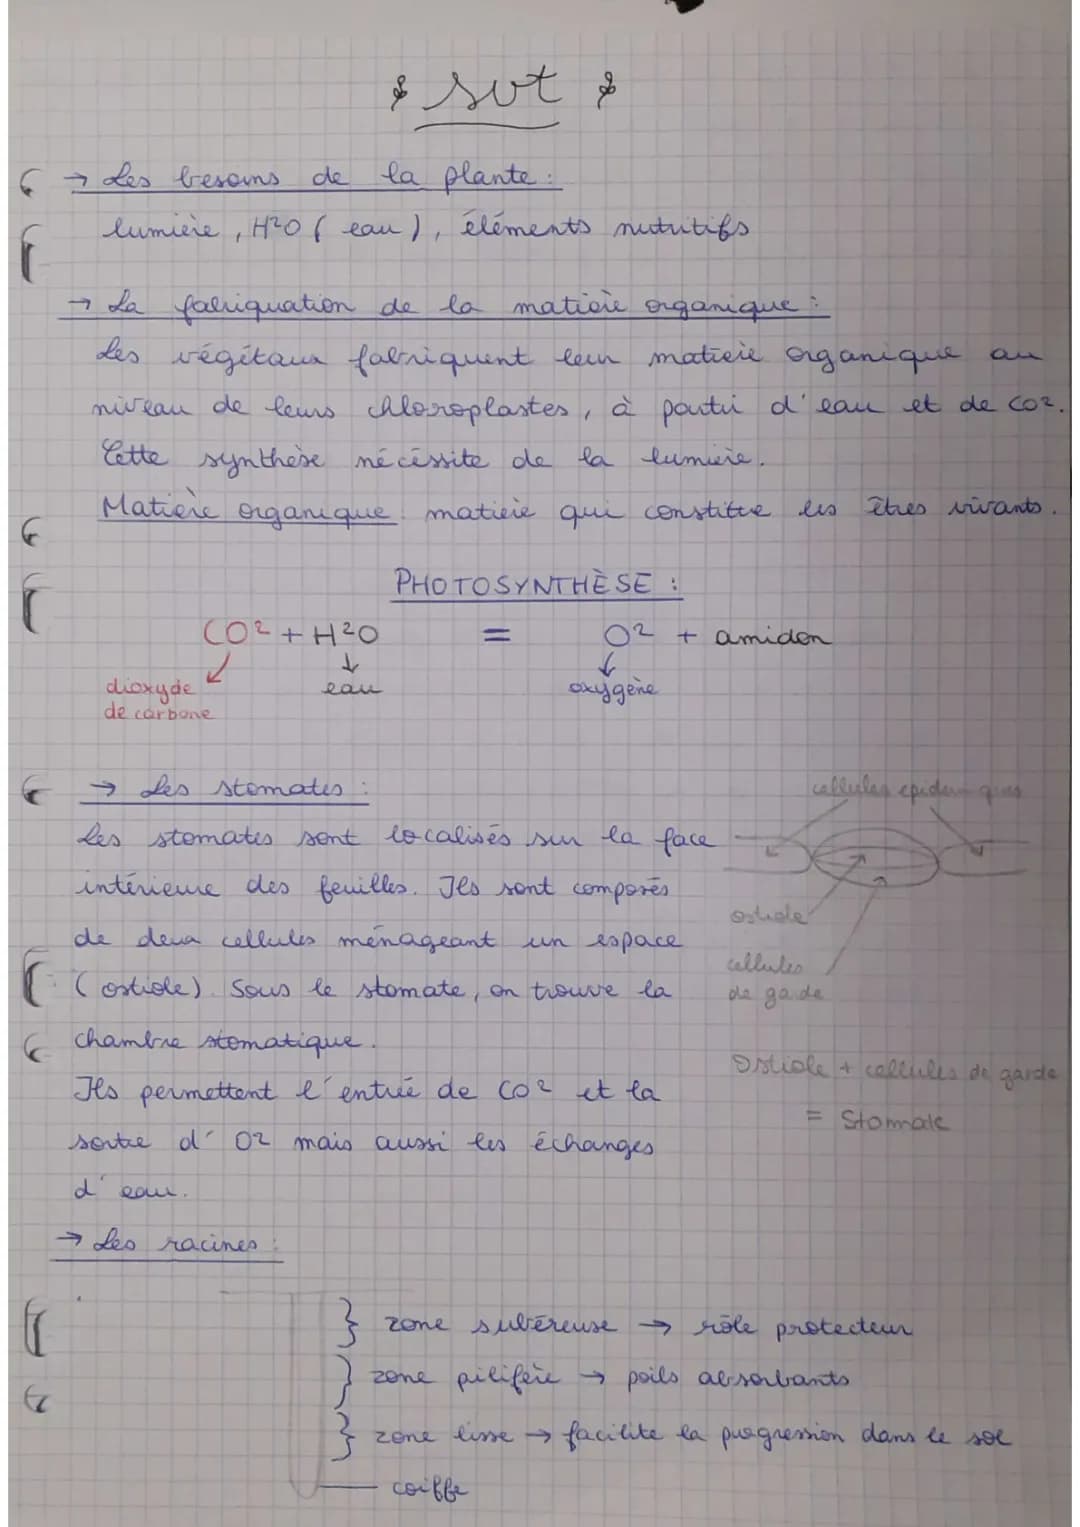 svt
→ Les besoins de la plante :
lumière, H²O ( eau ), éléments nutritifs
→ La fabriquation de la matière organique :
Les végétaux fabriquent leur matière organique au
niveau de leurs chloroplastes, à partir d'eau et de CO2.
Cette synthèse nécéssite de la lumière.
Matière organique : matière qui constitue les êtres vivants.
PHOTOSYNTHÈSE :
CO² + H²O = O² + amidon
dioxyde de carbone
eau
oxygène
→ Les stomates :
Les stomates sont localisés sur la face
intérieure des feuilles. Ils sont composés
de deux cellules ménageant un espace
( ostiole). Sous le stomate, on trouve la
chambre stomatique.
Ils permettent l'entrée de CO² et la
sortie d' O2 mais aussi les échanges
d'eau.
cellules epidermiques
ostiole
cellules
de garde
Ostiole + cellules de garde
= Stomate
→ Les racines :
} zone subéreuse → rôle protecteur
} zone pilifère → poils absorbants
} zone lisse → facilite la progression dans le sol
coiffe